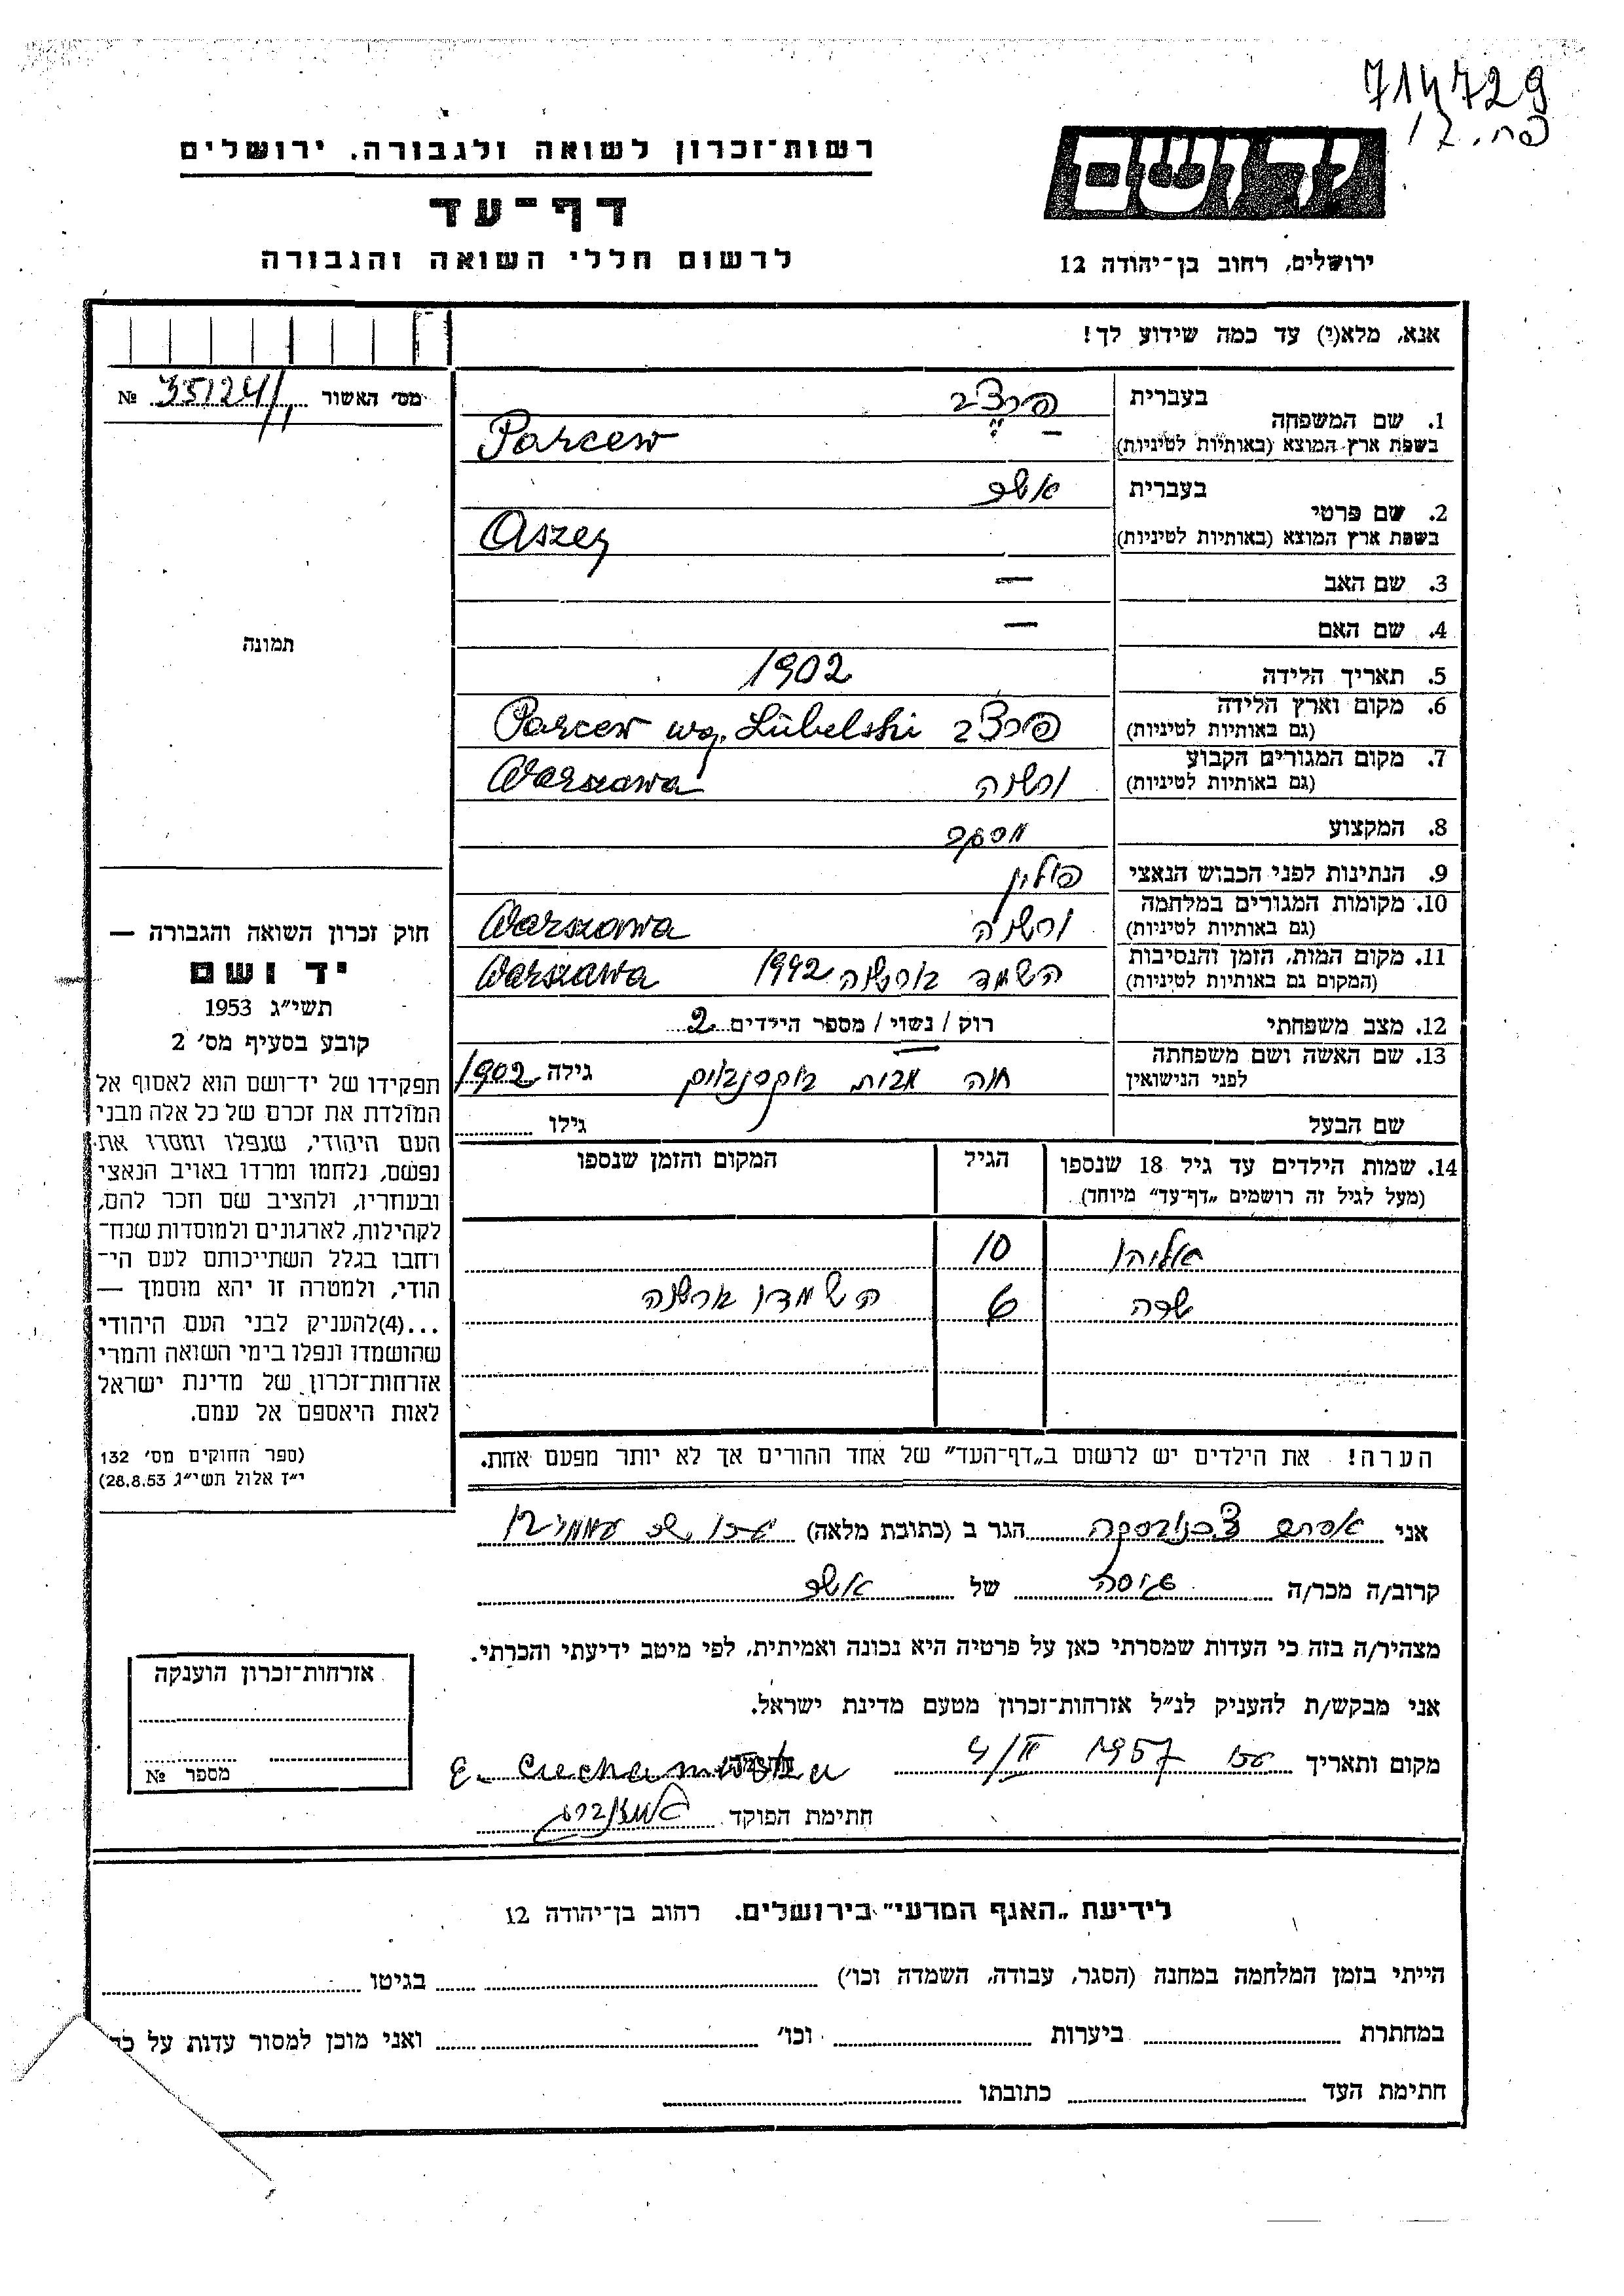 714729
רשות־זכרון לשואה ולגבורה. ירושלים
יד ושם
דף־עד
לרשום חללי השואה והגבורה
ירושלים, רחוב בן־יהודה 12
אנא, מלא(י) עד כמה שידוע לך!
מס׳ האשור 35124/1 №
תמונה
1. שם המשפחה
בעברית פרצ׳ב
בשפת ארץ המוצא (באותיות לטיניות) Parcew
2. שם פרטי
בעברית אשר
בשפת ארץ המוצא (באותיות לטיניות) Aszer
3. שם האב —
4. שם האם —
5. תאריך הלידה 1902
6. מקום וארץ הלידה (גם באותיות לטיניות) פרצ׳ב Parcew wg. Lubelski
7. מקום המגורים הקבוע (גם באותיות לטיניות) ורשה Warszawa
8. המקצוע
9. הנתינות לפני הכבוש הנאצי פולין
10. מקומות המגורים במלחמה (גם באותיות לטיניות) ורשה Warszawa
11. מקום המות, הזמן והנסיבות (המקום גם באותיות לטיניות) השמד בורשה 1942 Warszawa
12. מצב משפחתי רוק / נשוי / מספר הילדים 2
13. שם האשה ושם משפחתה לפני הנישואין חוה מבית גילה 1902
שם הבעל גילו
14. שמות הילדים עד גיל 18 שנספו
(מעל לגיל זה רושמים „דף־עד״ מיוחד)
הגיל
המקום והזמן שנספו
אליהו 10
שרה 6 השמדו בורשה
הערה! את הילדים יש לרשום ב„דף־העד״ של אחד ההורים אך לא יותר מפעם אחת.
חוק זכרון השואה והגבורה —
יד ושם
תשי״ג 1953
קובע בסעיף מס׳ 2
תפקידו של יד־ושם הוא לאסוף אל
המולדת את זכרם של כל אלה מבני
העם היהודי, שנפלו ומסרו את
נפשם, נלחמו ומרדו באויב הנאצי
ובעוזריו, ולהציב שם וזכר להם,
לקהילות, לארגונים ולמוסדות שנח־
רחבו בגלל השתייכותם לעם הי־
הודי, ולמטרה זו יהא מוסמך —
...(4)להעניק לבני העם היהודי
שהושמדו ונפלו בימי השואה והמרי
אזרחות־זכרון של מדינת ישראל
לאות היאספם אל עמם.
(ספר החוקים מס׳ 132
י״ז אלול תשי״ג 28.8.53)
אני הגר ב (כתובת מלאה)
קרוב/ה מכר/ה גיסה של אשר
מצהיר/ה בזה כי העדות שמסרתי כאן על פרטיה היא נכונה ואמיתית, לפי מיטב ידיעתי והכרתי.
אני מבקש/ת להעניק לנ״ל אזרחות־זכרון מטעם מדינת ישראל.
מקום ותאריך עכו 1957 4/II
חתימת הפוקד
אזרחות־זכרון הוענקה
מספר №
לידיעת „האגף המדעי״ בירושלים. רחוב בן־יהודה 12
הייתי בזמן המלחמה במחנה (הסגר, עבודה, השמדה וכו׳) בגיטו
במחתרת ביערות וכו׳ ואני מוכן למסור עדות על כך
חתימת העד כתובתו